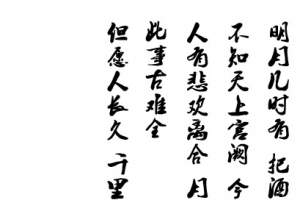 明月几时有 把酒
不知天上宫阙 今
人有悲欢离合 月
此事古难全
但愿人长久 千里